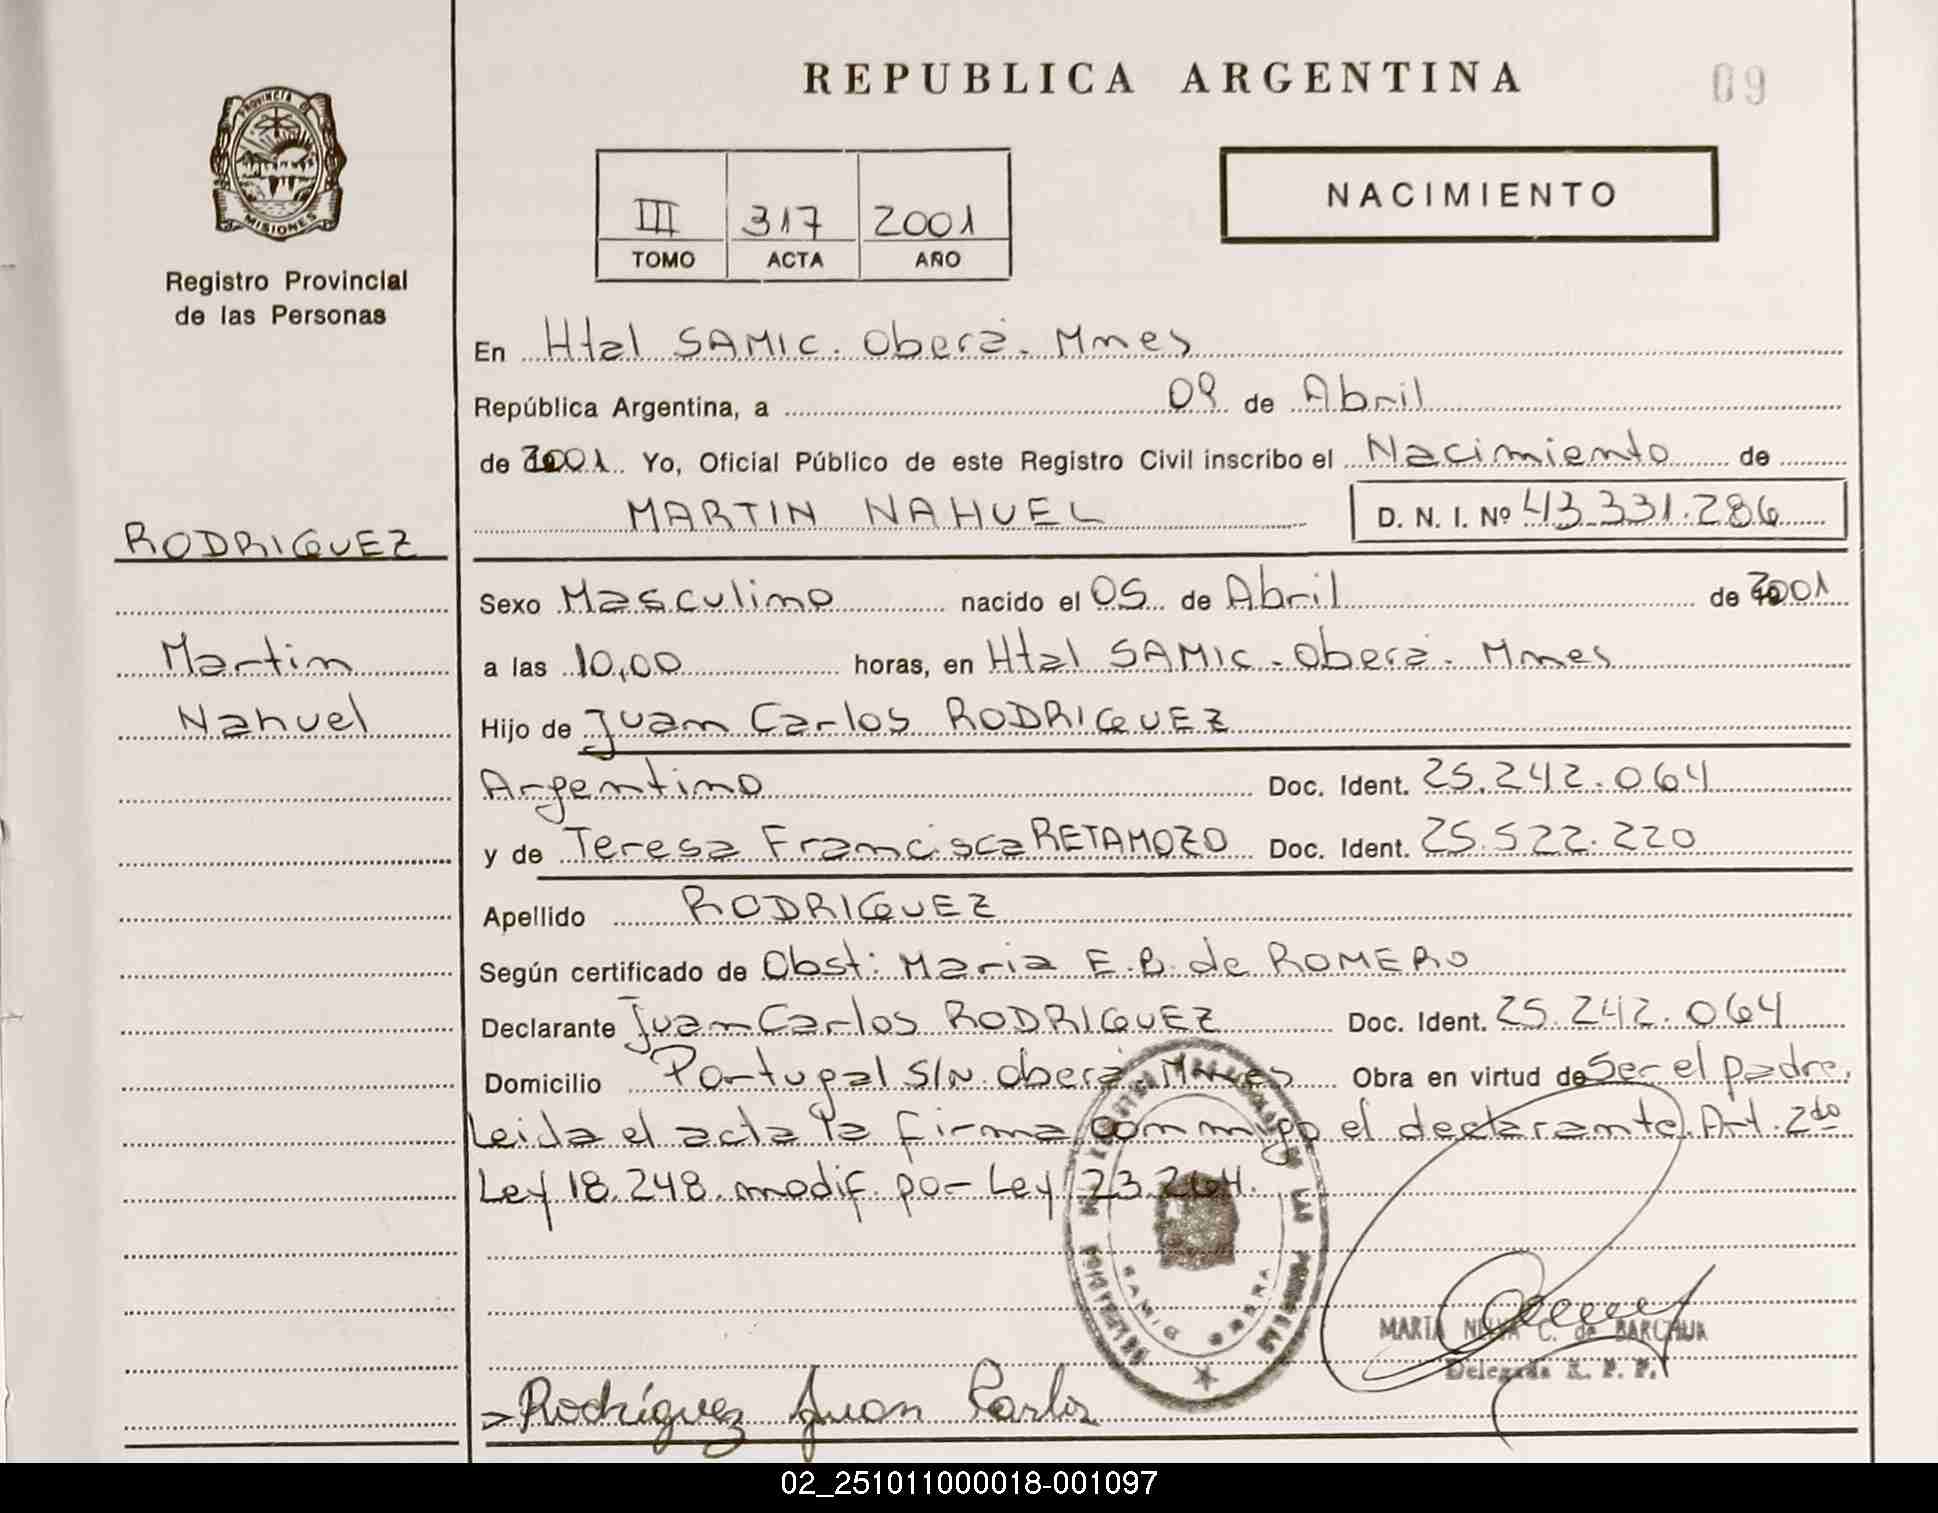 REPUBLICA ARGENTINA
09
PROVINCIA DE
MISIONES
Registro Provincial
de las Personas
III 317 2001
TOMO ACTA AÑO
NACIMIENTO
En Htal SAMIC. Oberá. Mnes
República Argentina, a 09 de Abril
de 2001 Yo, Oficial Público de este Registro Civil inscribo el Nacimiento de
MARTIN NAHUEL D. N. I. Nº 43.331.286
RODRIGUEZ
Martin
Nahuel
Sexo Masculino nacido el 05 de Abril de 2001
a las 10,00 horas, en Htal SAMIC. Oberá. Mnes
Hijo de Juan Carlos RODRIGUEZ
Argentino Doc. Ident. 25.242.064
y de Teresa Francisca RETAMOZO Doc. Ident. 25.522.220
Apellido RODRIGUEZ
Según certificado de Obst: Maria E.B. de ROMERO
Declarante Juan Carlos RODRIGUEZ Doc. Ident. 25.242.064
Domicilio Portugal S/N. Oberá Mnes Obra en virtud de Ser el padre.
Leida el acta la firma conmigo el declarante. Art. 2do
Ley 18.248. modif. por Ley 23.264.
LAS
SAMIC OBERA
MARIA C. de
Delegada R. P. P.
Rodríguez Juan Carlos
02_251011000018-001097